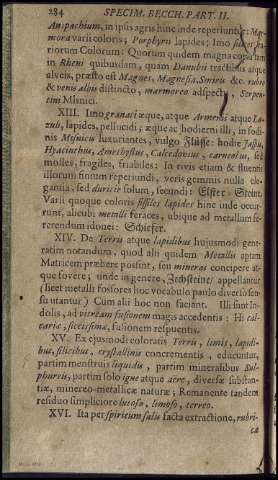 284 SPECIM. BECCH. PART. II.
Anspachium, in ipsis agris hinc inde reperiuntur: Mar-
mora varii coloris; Porphyrii lapides; Imo
riorum Colorum: Quorum quidem magna copia tum
in Rheni quibusdam, quam Danubii tractibus atque
alveis, præsto est Magnes, Magnesia, Smiris &c. rubro
& venis albis distincto, marmoreo adspectu, Serpen-
tini Misnici.
XIII. Imo granati æque, atque Armenus atque La-
zuli, lapides, pellucidi, æque ac hodierni illi, in fodi-
nis Misnicis luxuriantes, vulgo Flüsse: hodie Jaspis,
Hyacinthus, Amethystus, Calcedonius, carneolus, sed
molles, fragiles, friabiles: In rivis etiam & fluentis
illorum sinum reperiundi, veris gemmis nulla ele-
gantia, sed duritie solum, secundi: Elster-Steine.
Varii quoque coloris fissiles lapides hinc inde occur-
runt, alicubi metalli feraces, ubique ad metallum fe-
rendum idonei: Schiefer.
XIV. De Terris atque lapidibus hujusmodi gene-
ratim notandum, quod alii quidem Metallis aptam
Matricem præbere possint, seu mineras concipere at-
que fovere; unde in genere, Zechsteine/ appellantur
(licet metalli fossores hoc vocabulo paulo diverso sen-
su utantur) Cum alii hoc non faciant. Illi sunt in-
dolis, ad vitream fusionem magis accedentis: Hi cal-
cariæ, siccissimæ, fusionem respuentis.
XV. Ex ejusmodi coloratis Terris, limis, lapidi-
bus, silicibus, crystallinis concrementis, educuntur,
partim menstruis liquidis, partim mineralibus Sul-
phureis, partim solo igne atque aere, diversæ substan-
tiæ, minereo-metallicæ naturæ; Romanente tandem
residuo simpliciore lutoso, limoso, terreo.
XVI. Ita per spiritum salis facta extractione, rubri-
ca